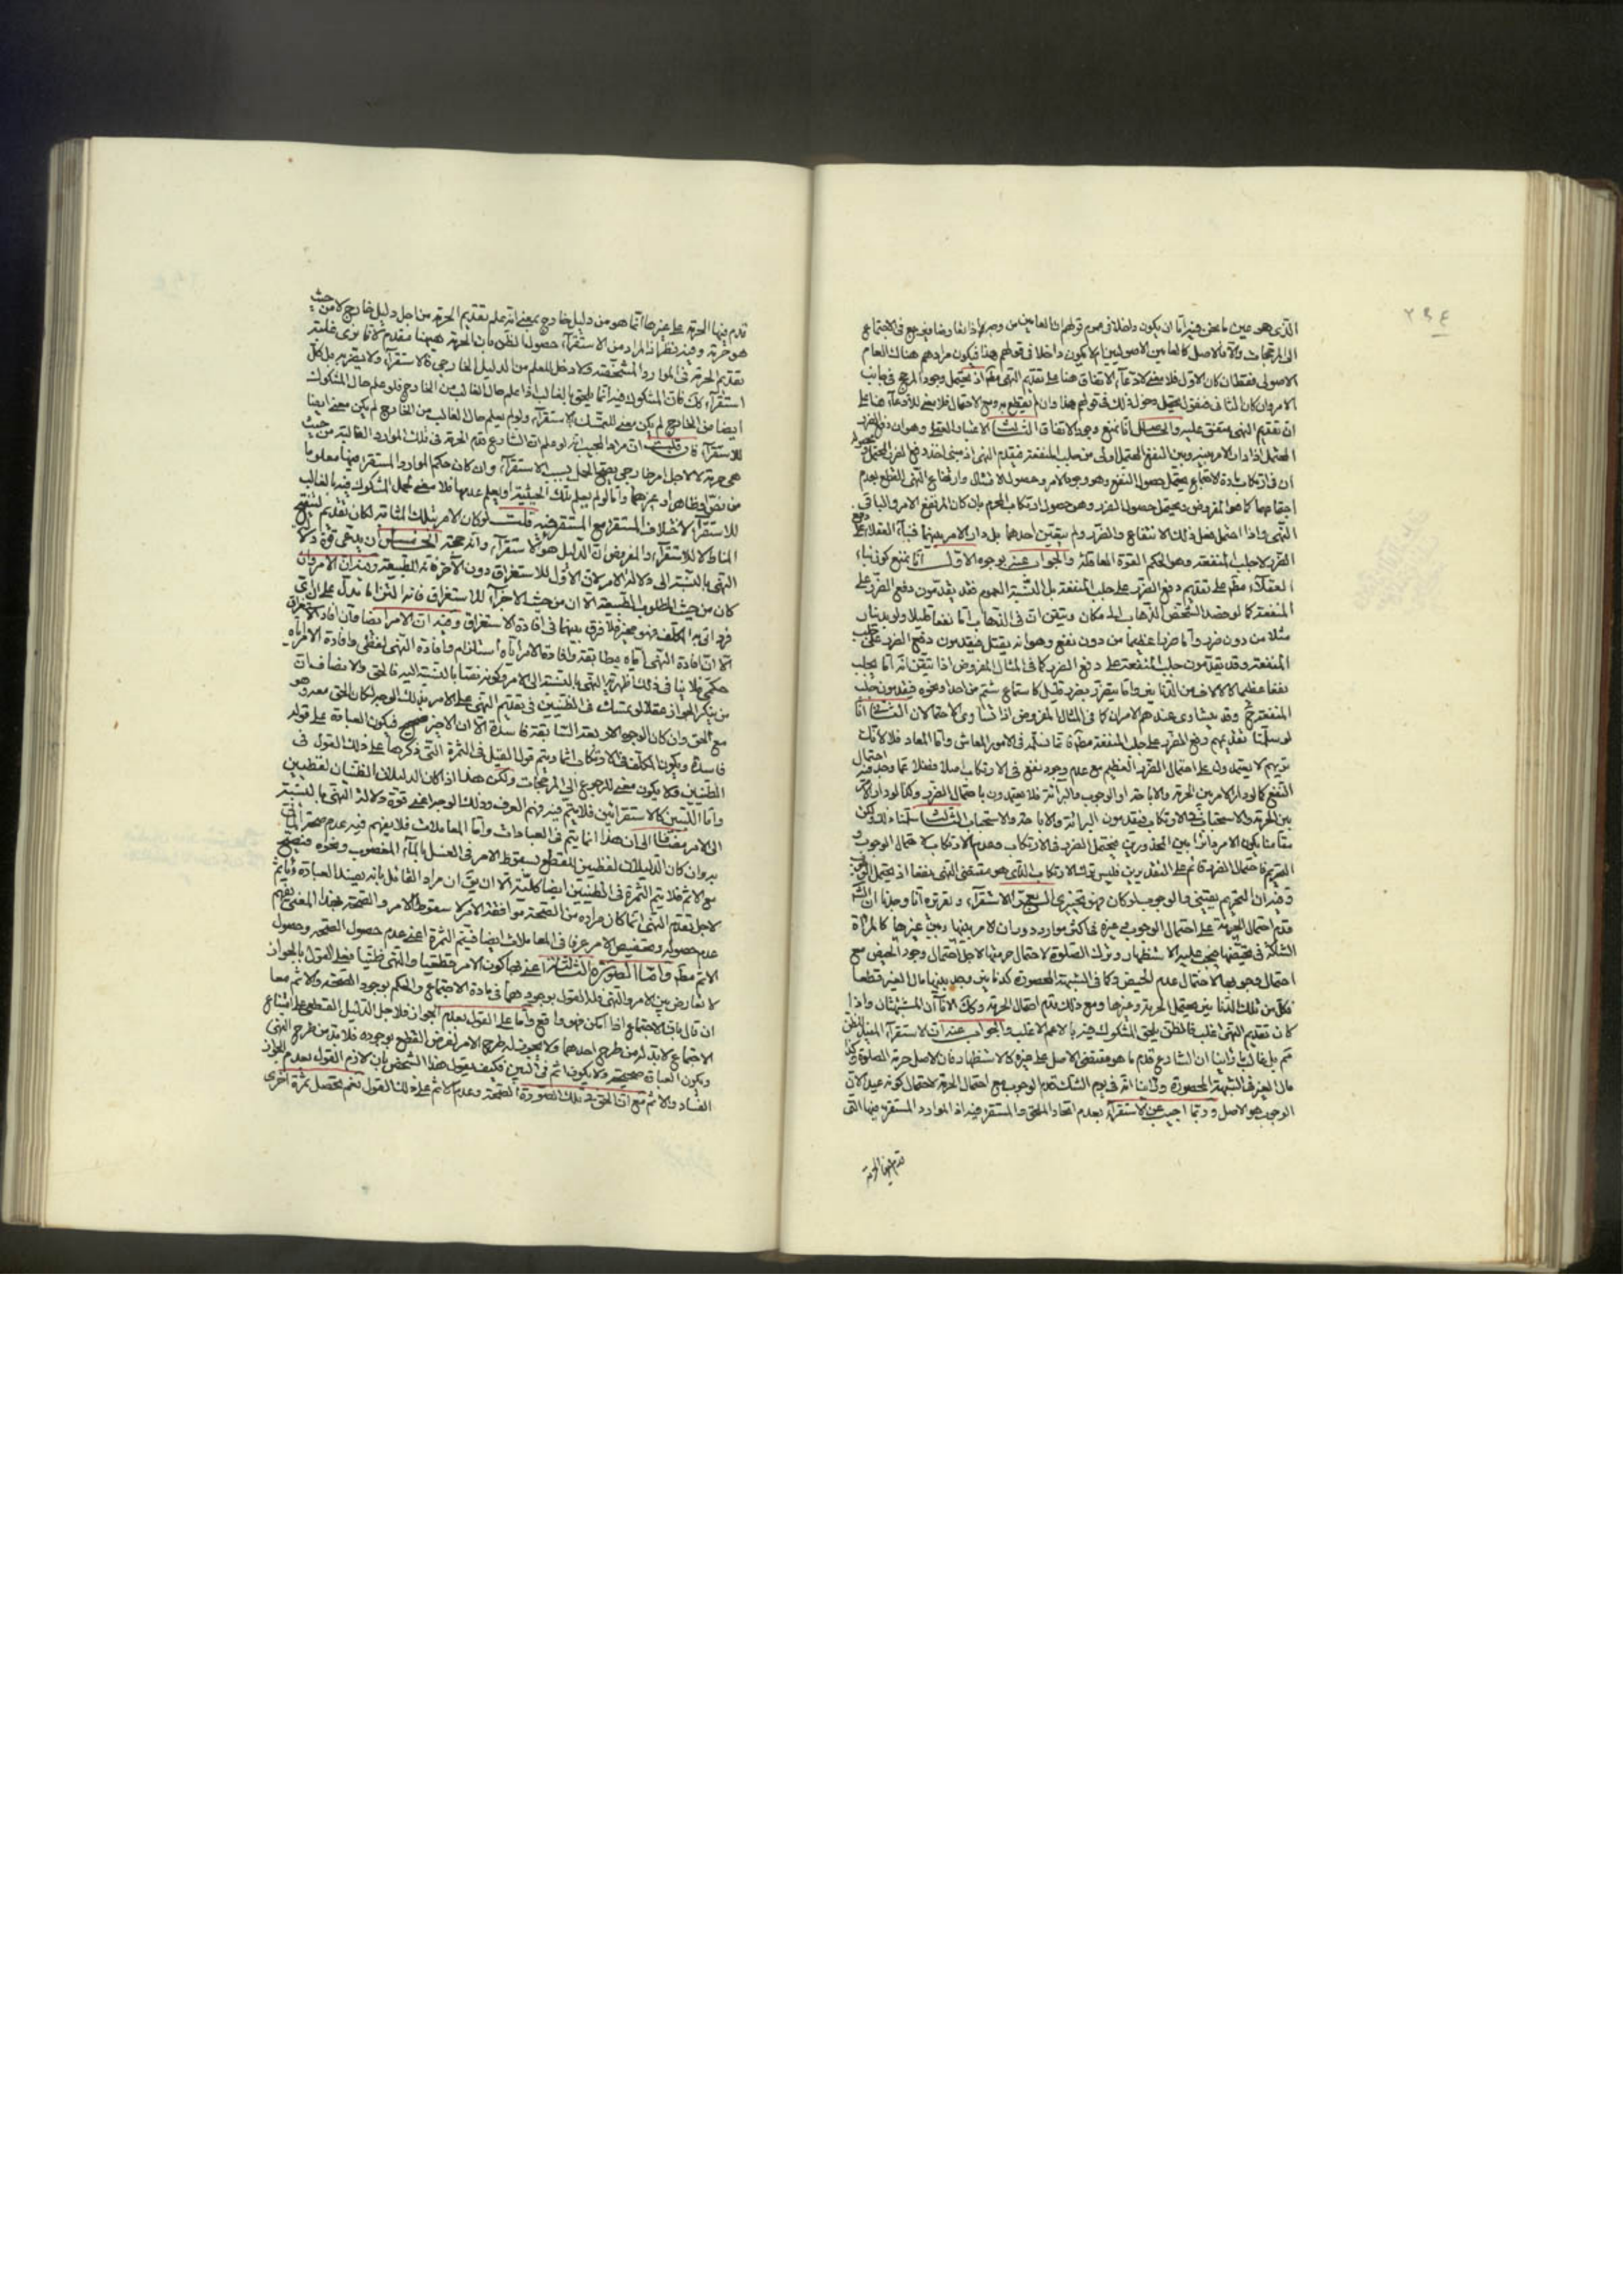 ٢٩٤
الذى هو عين ما نحن فيه اما ان يكون داخلا فى عموم قولهم ان العامين من وجه اذا تعارضا يرجع فى الاجتماع
الى المرجحات والا فالاصل كالعامين الاصوليين ام لا يكون داخلا فى قولهم هذا فيكون مرادهم هناك العام
الاصولى فقط فان كان الاول فلا معنى لادعاء الاتفاق هنا على تقديم النهى مطم اذ يحتمل وجود المرجح فى جانب
الامر وان كان الثانى فنقول يحتمل دخول ذلك فى قولهم هذا وان لم يقطع به ومع الاحتمال فلا معنى للادعاء هنا على
ان تقديم النهى متفق عليه والحاصل انا نمنع وجود الاتفاق الثالث الاعتبار العقلى وهو ان دفع الضرر
المحتمل اذا دار الامر بينه وبين النفع المحتمل اولى من جلب المنفعة فيقدم النهى اذ مبنى اخذه دفع الضرر المحتمل
ان قلت مادة الاجتماع يحتمل حصول النفع وهو وجود الامر وحصول الامتثال وارتفاع النهى للقطع بعدم
اجتماعهما كما هو المفروض ويحتمل حصول الضرر وهو حصول ارتكاب المحرم بان كان المرتفع الامر والباقى
النهى واذا احتمل فعل ذلك الانتفاع والضرر ولم يتيقن احدهما بل دار الامر بينهما فبناء العقلاء على دفع
الضرر لا جلب المنفعة وهو الحكم القوة العاقلة والجواب عنه بوجوه الاول انا نمنع كون بناء
العقلاء مطم على تقديم دفع الضرر على جلب المنفعة بل النسبة العموم فقد يقدمون دفع الضرر على
المنفعة كما لو قصد الشخص الذهاب الى مكان وتيقن ان فى الذهاب اما نفعا قليلا ولو بدينار
مثلا من دون ضرر واما ضررا عظيما من دون نفع وهو انه يقتل فيقدمون دفع الضرر على جلب
المنفعة وقد يقدمون جلب المنفعة على دفع الضرر كما فى المثال المفروض اذا تيقن انه اما يجلب
نفعا عظيما كالالاف من الدنانير واما يتضرر بضرر قليل كاستماع شتم من احد ونحوه فيقدمون جلب
المنفعة ح وقد يتساوى عندهم الامران كما فى المثال المفروض اذا تساوى الاحتمالان الثانى انا
لو سلمنا تقديمهم دفع الضرر على جلب المنفعة مطم فانما نسلمه فى الامور المعاش واما المعاد فلا لانك
تريهم لا يعتمدون على احتمال الضرر العظيم مع عدم وجود نفع فى الارتكاب اصلا فضلا عما وجد فيه احتمال
النفع كما لو دار الامر بين الحرمة والاباحة او الوجوب والبرائة فلا يعتمدون باحتمال الضرر وكما لو دار الامر
بين الحرمة والاستحباب فى الارتكاب فيقدمون البرائة والاباحة والاستحباب الثالث سلمنا ذلك لكن
مقامنا يكون الامر دائرا بين المحذورين محتمل الضرر فى الارتكاب وعدم الارتكاب لاحتمال الوجوب و
التحريم فاحتمال الضرر قائم على التقديرين فليس ترك الارتكاب الذى هو مقتضى النهى نفعا اذ يحتمل الوجوب
وفيه ان التحريم يقينى والوجوب لو كان فهو تخييرى الرابع الاستقراء وتقريره انا وجدنا ان الشارع
قدم احتمال الحرمة على احتمال الوجوب وغيره فى اكثر موارد دوران الامر بينها وبين غيرها كالمرأة
الشاكة فى حيضها فيجب عليها الاستظهار وترك الصلوة لاحتمال حرمتها لاجل احتمال وجود الحيض مع
احتمال وجوبها لاحتمال عدم الحيض وكما فى الشبهة المحصورة كدنانير وجد بينها مال الغير قطعا
فكل من تلك الدنانير يحتمل الحرمة وغيرها ومع ذلك قدم احتمال الحرمة وكك الاناآن المشتبهان واذا
كان تقديم النهى اغلب فالظن يلحق المشكوك فيه بالاعم الاغلب والجواب عنه ان الاستقراء المفيد للظن
ثم بل غالب ما رأينا ان الشارع قدم ما هو مقتضى الاصل على غيره كالاستظهار فان الاصل حرمة الصلوة وكذا
مال الغير فى الشبهة المحصورة ورأينا انه فى يوم الشك قدم الوجوب مع احتمال الحرمة لاحتمال كونه عيدا لان
الوجوب هو الاصل وربما اجيب عن الاستقراء بعدم اتحاد الملحق والمستقرء فيه اذ الموارد المستقرء فيها التى
قدم فيها الحرمة
قدم فيها الحرمة على غيرها انما هو من دليل خارج بمعنى انه علم تقديم الحرمة من اجل دليل خارج لا من حيث
هو حرمة وفيه نظر اذ المراد من الاستقراء حصول الظن بان الحرمة ههنا مقدم لانا نرى غلبة
تقديم الحرمة فى الموارد المشخصة ولا دخل للعلم من الدليل الخارجى فى الاستقراء ولا يضر به بل كل
استقراء كك فان المشكوك فيه انما يلحق بالغالب اذا علم حال الغالب من الخارج فلو علم حال المشكوك
ايضا من الخارج لم يكن معنى للتمسك بالاستقراء ولو لم يعلم حال الغالب من الخارج لم يكن معنى ايضا
للاستقراء فان قلت ان مراد المجيب انه لو علم ان الشارع قدم الحرمة فى تلك الموارد الغالبة من حيث
هى حرمة لا لاجل امر خارجى يصح الحمل بسبب الاستقراء وان كان حكم الموارد المستقرء فيها معلوما
من نص او ظاهر او غيرهما واما لو لم يعلم تلك الحيثية او يعلم عدمها فلا معنى لحمل المشكوك فيه بالغالب
للاستقراء لاختلاف المستقرء مع المستقرء فيه قلت لو كان الامر بتلك المثابة لكان تقديم لتنقيح
المناط لا للاستقراء والمفروض ان الدليل هو الاستقراء وانه حجة الخامس ان يدعى قوة دلالة
النهى بالنسبة الى دلالة الامر لان الاول للاستغراق دون الآخر فانه للطبيعة وفيه ان الامر وان
كان من حيث المطلوب الطبيعة الا ان من حيث الاجزاء للاستغراق فانه التزاما يدل على ان اى
فرد اتى به المكلف فهو مجز فلا فرق بينهما فى افادة الاستغراق وفيه ان الامر ايضا وان افاد الاستغراق
الا ان افادة النهى اياه مطابقة وافادة الامر اياه استلزام وافادة النهى لفظى وافادة الامر اياه
حكمى فلا ينافى ذلك اظهرية النهى بالنسبة الى الامر وكونه نصا بالنسبة اليه فالحق والانصاف ان
من ينكر الجواز عقلا لو تمسك فى الظنيين فى تقديم النهى على الامر بذلك الوجه لكان الحق معه وهو
مع الحق وان كان الوجوه الاربعة السابقة فاسدة الا ان الاخير صحيح فيكون العبادة على قوله
فاسدة ويكون المكلف فى الارتكاب آثما ويتم قول القيل فى الثمرة التى ذكرها على ذلك القول فى
الظنيين ولا يكون معنى للرجوع الى المرجحات ولكن هذا اذا كان الدليلان الظنيان لفظيين
واما اللبيين كالاستقرائين فلا يتم فيه فهم العرف وذلك الوجه اعنى قوة دلالة النهى بالنسبة
الى الامر مضافا الى ان هذا انما يتم فى العبادات واما المعاملات فلا يفهم فيه عدم صحة المأتى
به وان كان الدليلان لفظيين للقطع بسقوط الامر فى الغسل بالماء المغصوب ونحوه فيصح
مع الاثم فلا يتم الثمرة فى الظنيين ايضا كلية الا ان يق ان مراد القائل بانه يفسد العبادة ويأثم
لاجل تقدم النهى انما كان مراده من الصحة موافقة الامر لا سقوط الامر والصحة بهذا المعنى يفهم
عدم حصوله وتخصيص الامر عرفا فى المعاملات ايضا فيتم الثمرة اعنى عدم حصول الصحة وحصول
الاثم مطم واما الصورة الثالثة اعنى فيما كون الامر قطعيا والنهى ظنيا فعلى القول بالجواز
لا تعارض بين الامر والنهى فله القول بوجودهما فى مادة الاجتماع والحكم بوجود الصحة والاثم معا
ان قال بان الاجتماع اذا امكن فهو واقع واما على القول بعدم الجواز فلاجل الدليل القطعى على امتناع
الاجتماع لابد له من طرح احدهما ولا يجوز له طرح الامر لفرض القطع بوجوده فلا بد من طرح النهى
ويكون العبادة صحيحة ولا يكون اثم فى البين فكيف يقول هذا الشخص بان لازم القول بعدم الجواز
الفساد والاثم مع ان الحق فى تلك الصورة الصحة وعدم الاثم على ذلك القول نعم يحصل ثمرة اخرى